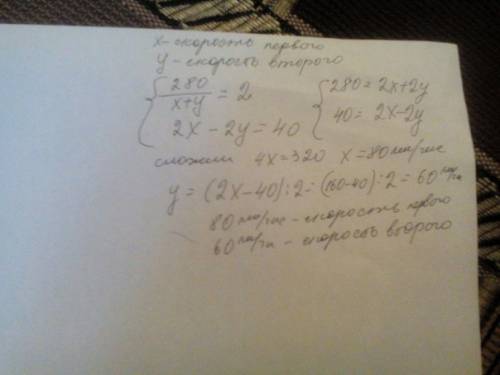 x - скорость первого
y - скорость второго
{ 280/(x+y) = 2   { 280 = 2x+2y
2x - 2y = 40   40 = 2x-2y
сложили 4x=320 x = 80 км/час
y = (2x-40):2 = (160-40):2 = 60 км/ч
80 км/час - скорость первого
60 км/ч - скорость второго